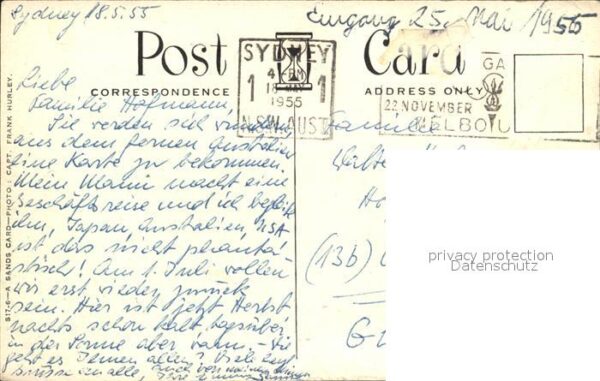 Sydney 18.5.55
Eingang 25. Mai 1955
Post Card
CORRESPONDENCE
ADDRESS ONLY
SYDNEY
4 PM
18 MAY
1 1
1955
N.S.W. AUST
GA
22 NOVEMBER
MELBOU
Liebe
Familie Hofmann,
Sie werden sich wundern
aus dem fernen Australien
eine Karte zu bekommen.
Mein Mann macht eine
Geschäftsreise und ich begleite
ihn, Japan, Australien, USA
ist das nicht phantas-
tisch! Am 1. Juli wollen
wir erst wieder zurück
sein. Hier ist jetzt Herbst
nachts schon kalt tagsüber
in der Sonne aber warm. - Wie
geht es Ihnen allen? Viele
Grüsse an alle, auch von meinem Mann
Ihre
Familie
(13b)
517-6-A SANDS CARD-PHOTO: CAPT. FRANK HURLEY.
privacy protection
Datenschutz